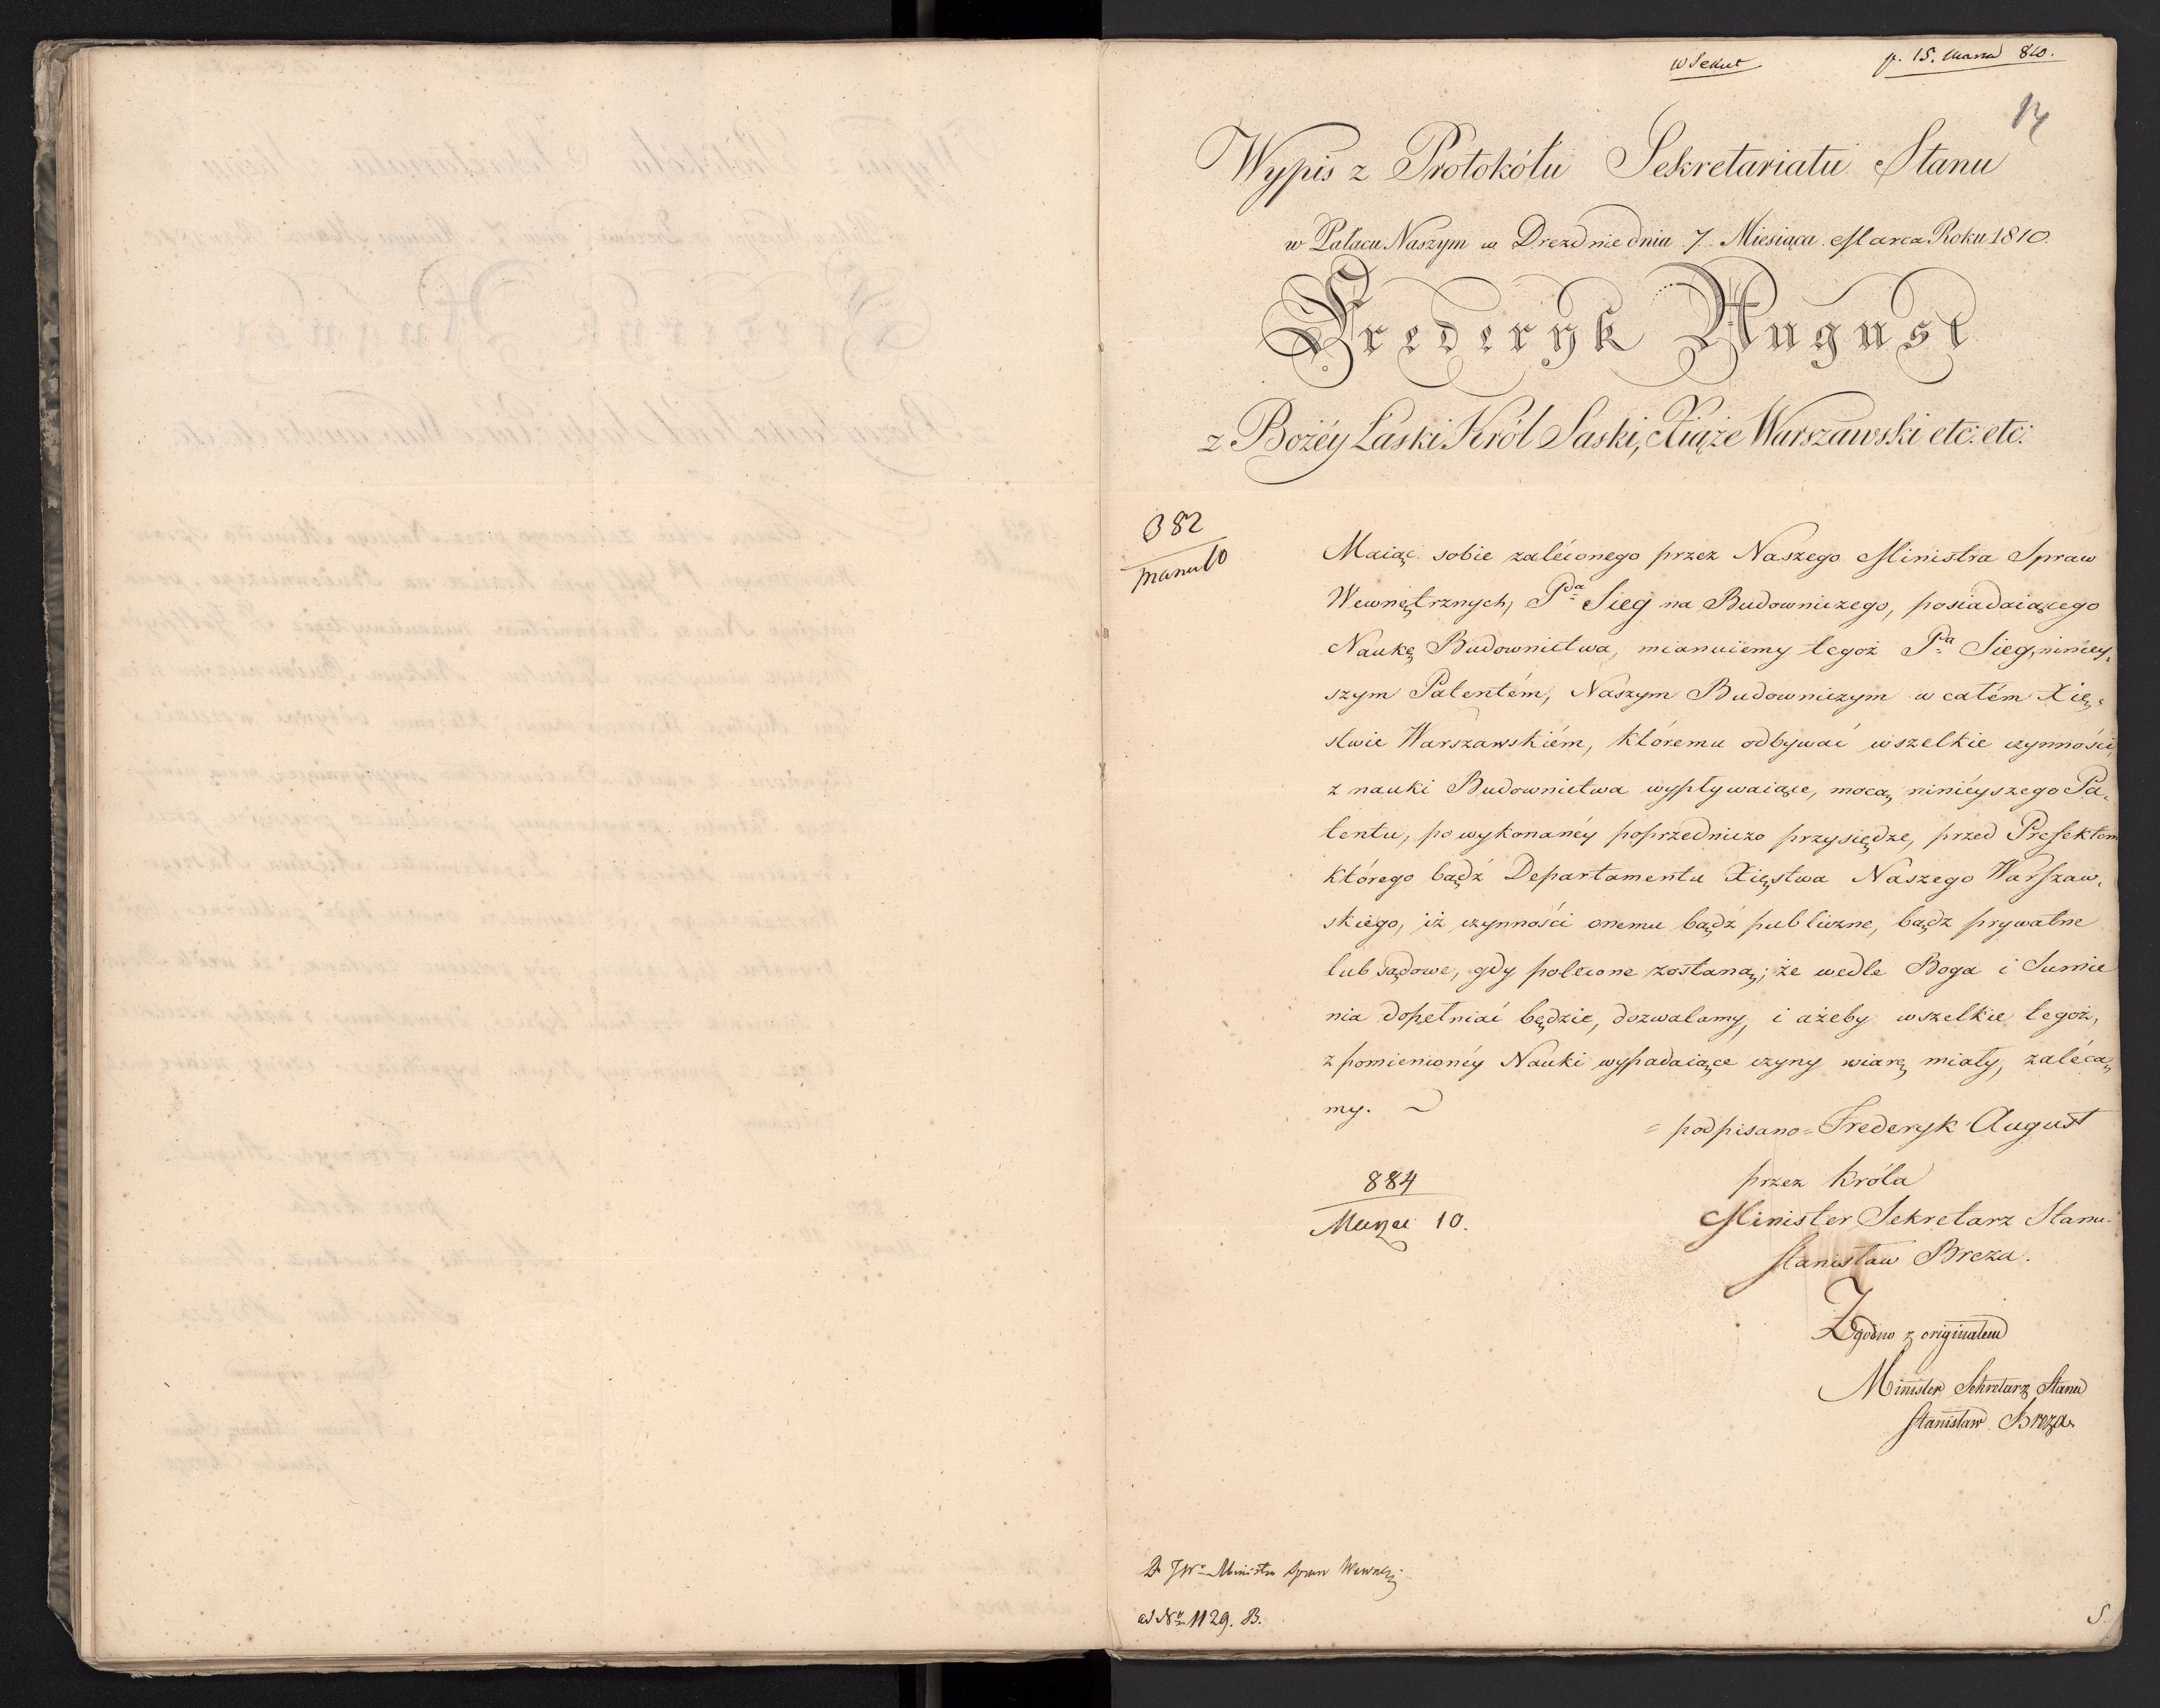 p. 15. Marca 810.
Wypis z Protokółu Sekretariatu Stanu
w Pałacu Naszym w Dreznie dnia 7. Miesiąca Marca Roku 1810.
Frederyk August
z Bożéy Łaski Król Saski, Xiąże Warszawski etc: etc:
382
Maiąc sobie zaléconego przez Naszego Ministra Spraw
Wewnętrznych, Pna Sieg na Budowniczego, posiadaiącego
Naukę Budownictwa, mianuiemy tegoż Pa Sieg, niniey-
szym Patentém, Naszym Budowniczym w całém Xię-
stwie Warszawskiém, któremu odbywać wszelkie czynności,
z nauki Budownictwa wypływaiące, mocą ninieyszego Pa-
tentu, po wykonanéy poprzedniczo przysiędze, przed Prefektem
którego bądź Departamentu Xięstwa Naszego Warszaw-
skiégo, iż czynności onemu bądź publiczne, bądz prywatne
lub sądowe, gdy polecone zostaną; że wedle Boga i Sumie
nia dopełniać będzie, dozwalamy, i ażeby wszelkie tegoż,
z pomienionéy Nauki wypadaiące czyny wiarę miały, zaléca-
my.
= podpisano = Frederyk August
przez Króla
884
Minister Sekretarz Stanu
Marca 10.
Stanisław Breza.
Zgodno z originałem
Minister Sekretarz Stanu
Stanisław Breza
Do JWo Ministra Spraw Wewnętz
ad No 1129. B.
S.